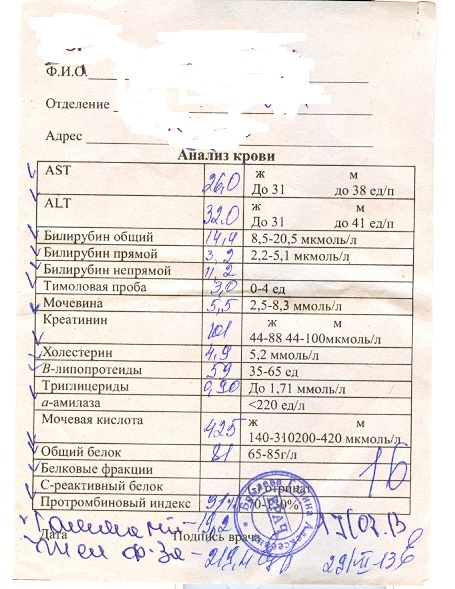 Ф.И.О.
Отделение
Адрес
Анализ крови
AST 26,0 ж м
До 31 до 38 ед/л
ALT 32,0 ж м
До 31 до 41 ед/л
Билирубин общий 14,4 8,5-20,5 мкмоль/л
Билирубин прямой 3,2 2,2-5,1 мкмоль/л
Билирубин непрямой 11,2
Тимоловая проба 3,0 0-4 ед
Мочевина 5,5 2,5-8,3 ммоль/л
Креатинин 101 ж м
44-88 44-100мкмоль/л
Холестерин 4,9 5,2 ммоль/л
В-липопротеиды 59 35-65 ед
Триглицериды 0,90 До 1,71 ммоль/л
а-амилаза <220 ед/л
Мочевая кислота 425 ж м
140-310200-420 мкмоль/л
Общий белок 81 65-85г/л
Белковые фракции 16
С-реактивный белок
Протромбиновый индекс 91%
Дата Подпись врача
ВРАЧ